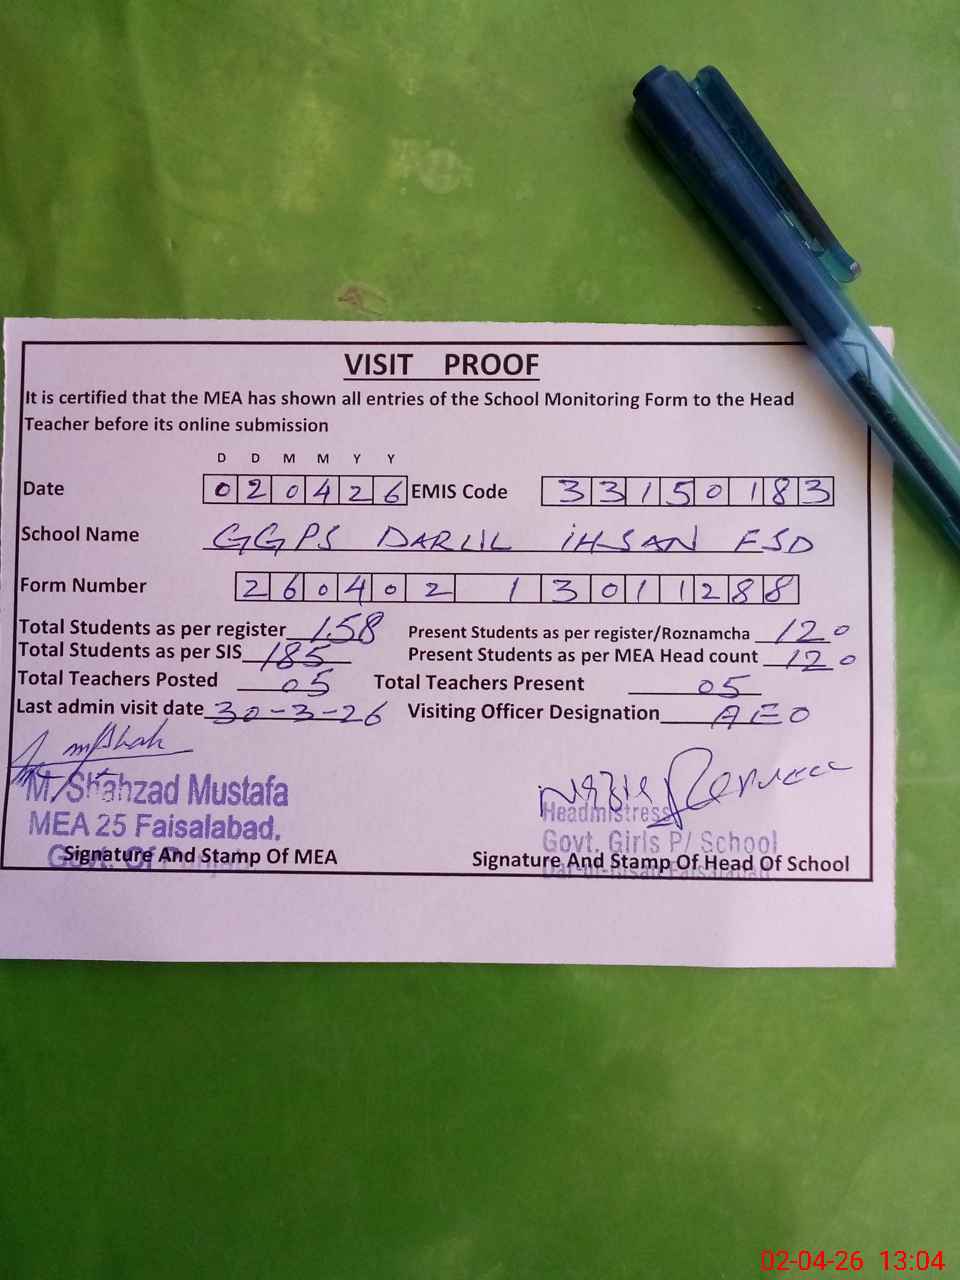 VISIT PROOF
It is certified that the MEA has shown all entries of the School Monitoring Form to the Head
Teacher before its online submission
D D M M Y Y
Date 020426 EMIS Code 33150183
School Name GGPS DARUL IHSAN FSD
Form Number 260402 13011288
Total Students as per register 158 Present Students as per register/Roznamcha 120
Total Students as per SIS 185 Present Students as per MEA Head count 120
Total Teachers Posted 05 Total Teachers Present 05
Last admin visit date 30-3-26 Visiting Officer Designation AEO
M. Shahzad Mustafa
MEA 25 Faisalabad.
Govt. Of Punjab.
Signature And Stamp Of MEA
Headmistress
Govt. Girls P/ School
Signature And Stamp Of Head Of School
02-04-26 13:04